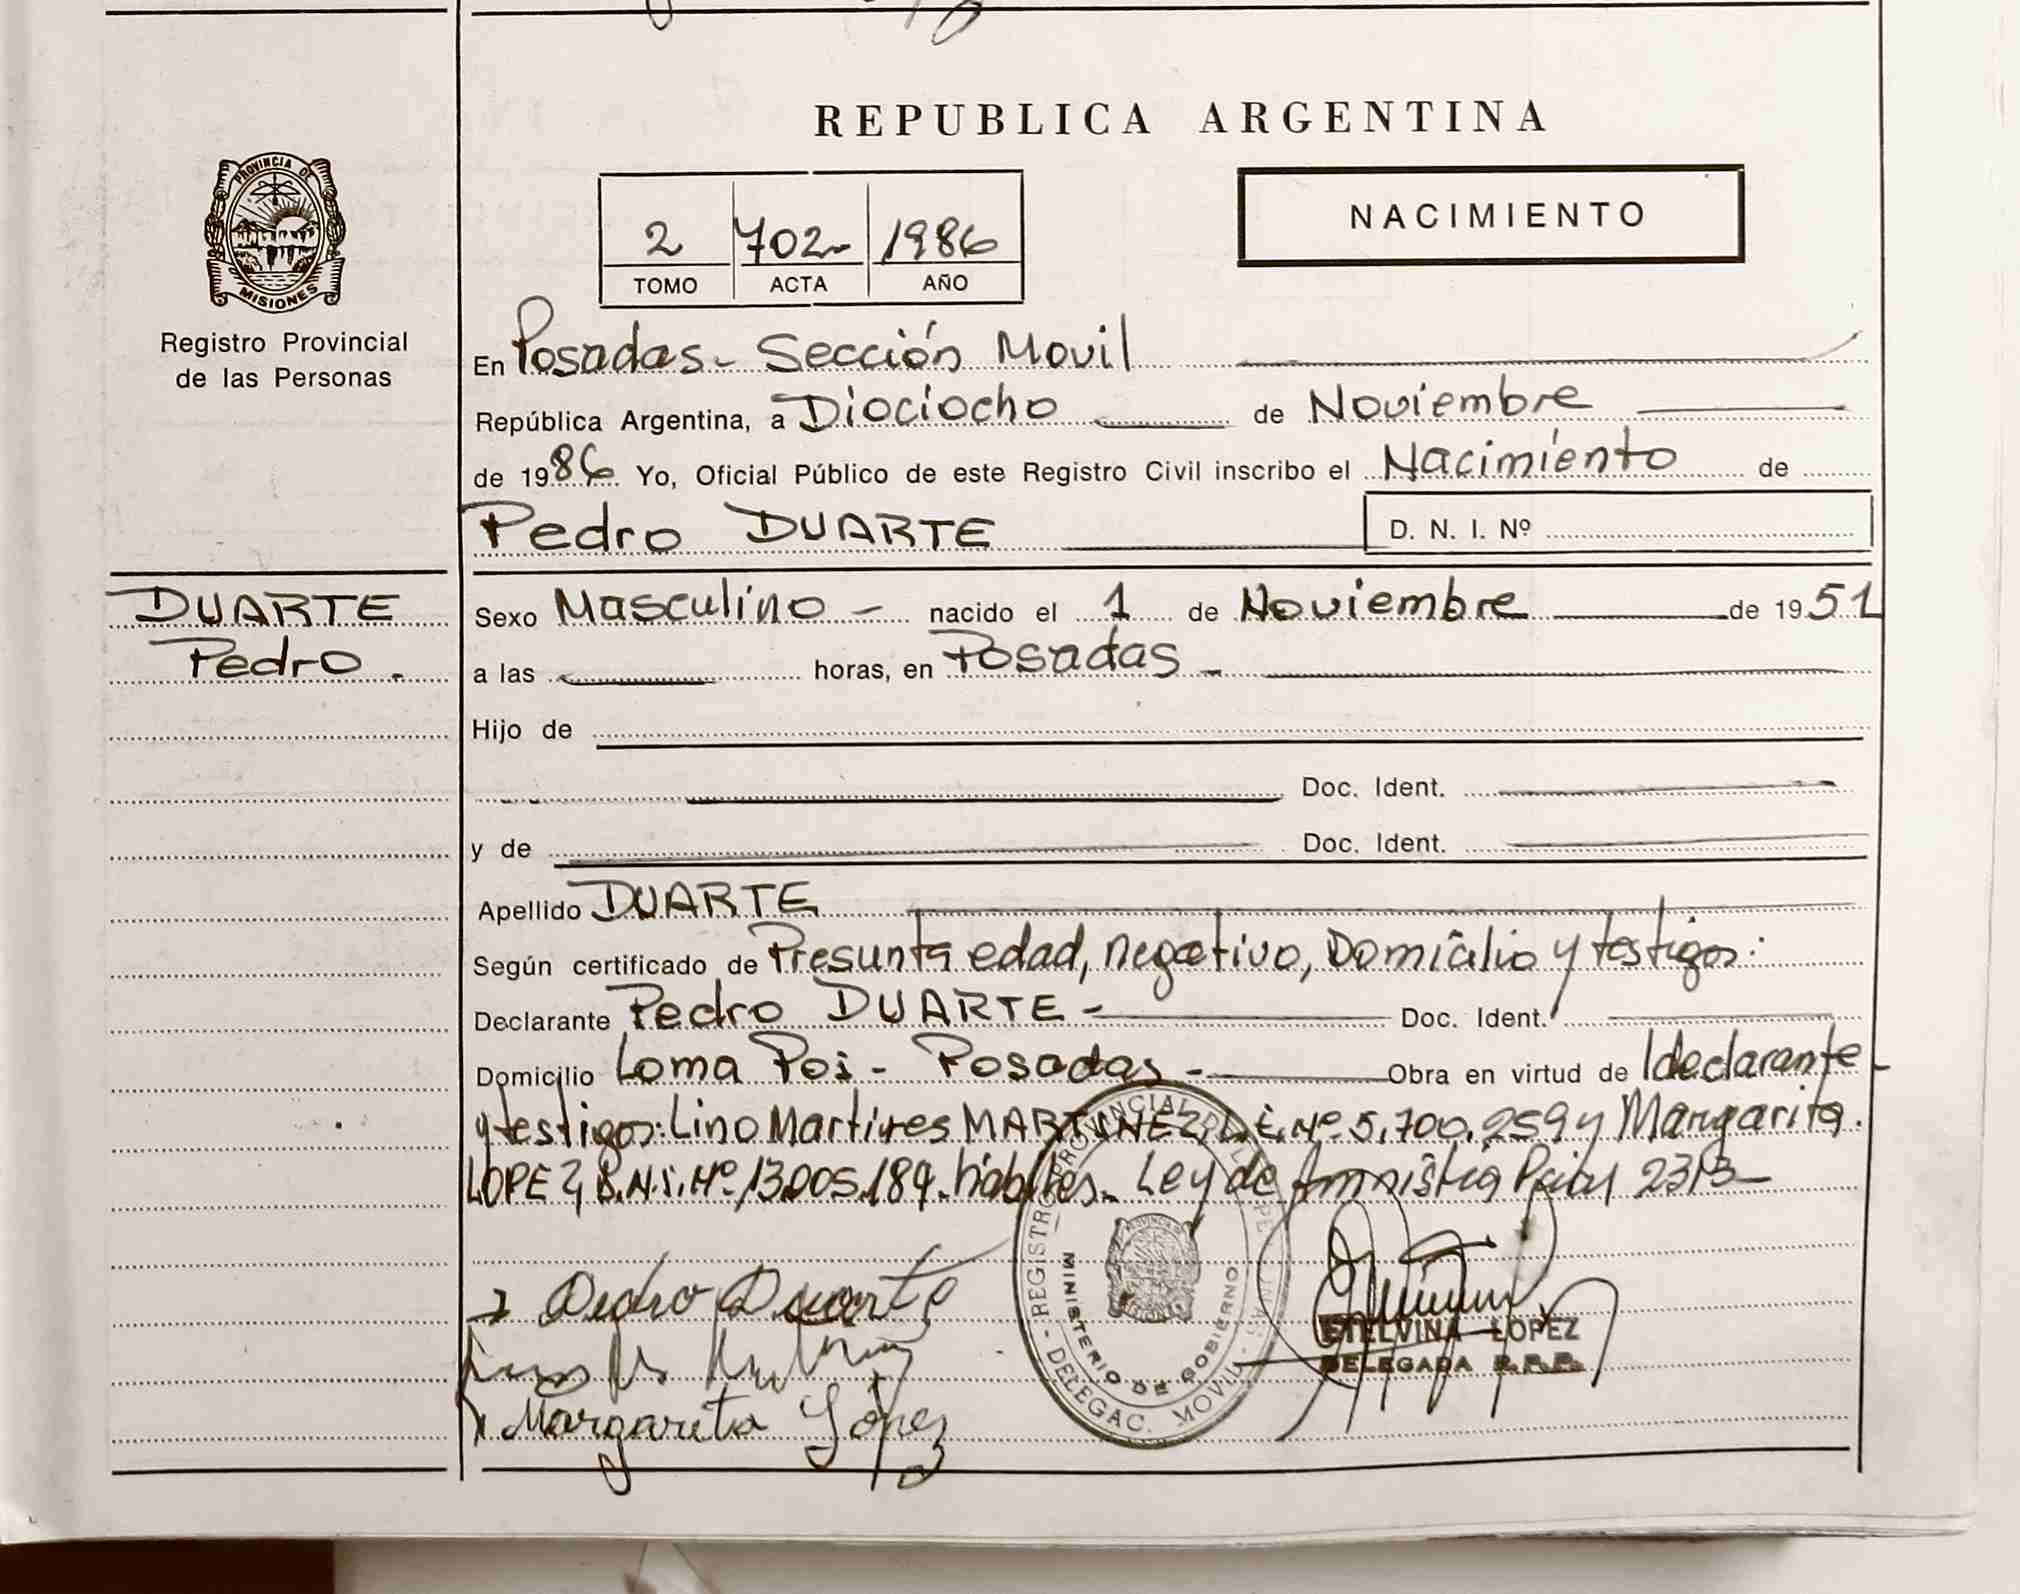 REPUBLICA ARGENTINA
PROVINCIA DE
MISIONES
Registro Provincial
de las Personas
2 702- 1986
TOMO ACTA AÑO
NACIMIENTO
En Posadas - Sección Movil
República Argentina, a Diociocho de Noviembre
de 1986 Yo, Oficial Público de este Registro Civil inscribo el Nacimiento de
Pedro DUARTE D. N. I. Nº
DUARTE
Pedro.
Sexo Masculino - nacido el 1 de Noviembre de 1951
a las horas, en Posadas -
Hijo de
Doc. Ident.
y de Doc. Ident.
Apellido DUARTE
Según certificado de Presunta edad, negativo, Domicilio y testigos:
Declarante Pedro DUARTE - Doc. Ident.
Domicilio Loma Poi - Posadas - Obra en virtud de ldeclarante
y testigos: Lino Martires MARTINEZ, L.E. Nº 5.700.259 y Margarita
LOPEZ, D.N.I. Nº 13.005.184. hábiles. Ley de Amnistia 2313-
Pedro Duarte
Margarita López
REGISTRO PROVINCIAL DE LAS PERSONAS
MINISTERIO DE GOBIERNO
DELEGAC. MOVIL
ETELVINA LOPEZ
DELEGADA R.P.P.